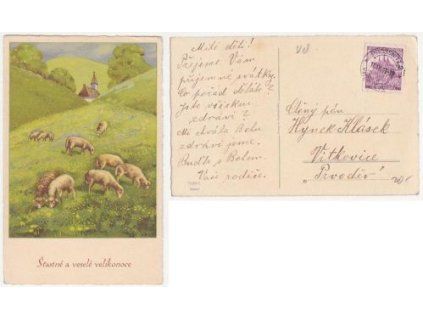 Šťastné a veselé velikonoce
Milé děti!
Přejeme Vám
příjemné svátky.
Co pořád děláte?
Jste všickni
zdraví?
Mi chvála Bohu
zdrávi jsme.
Buďte s Bohem.
Vaši rodiče.
Ctěný pán
Hynek Hlásek
Vítkovice